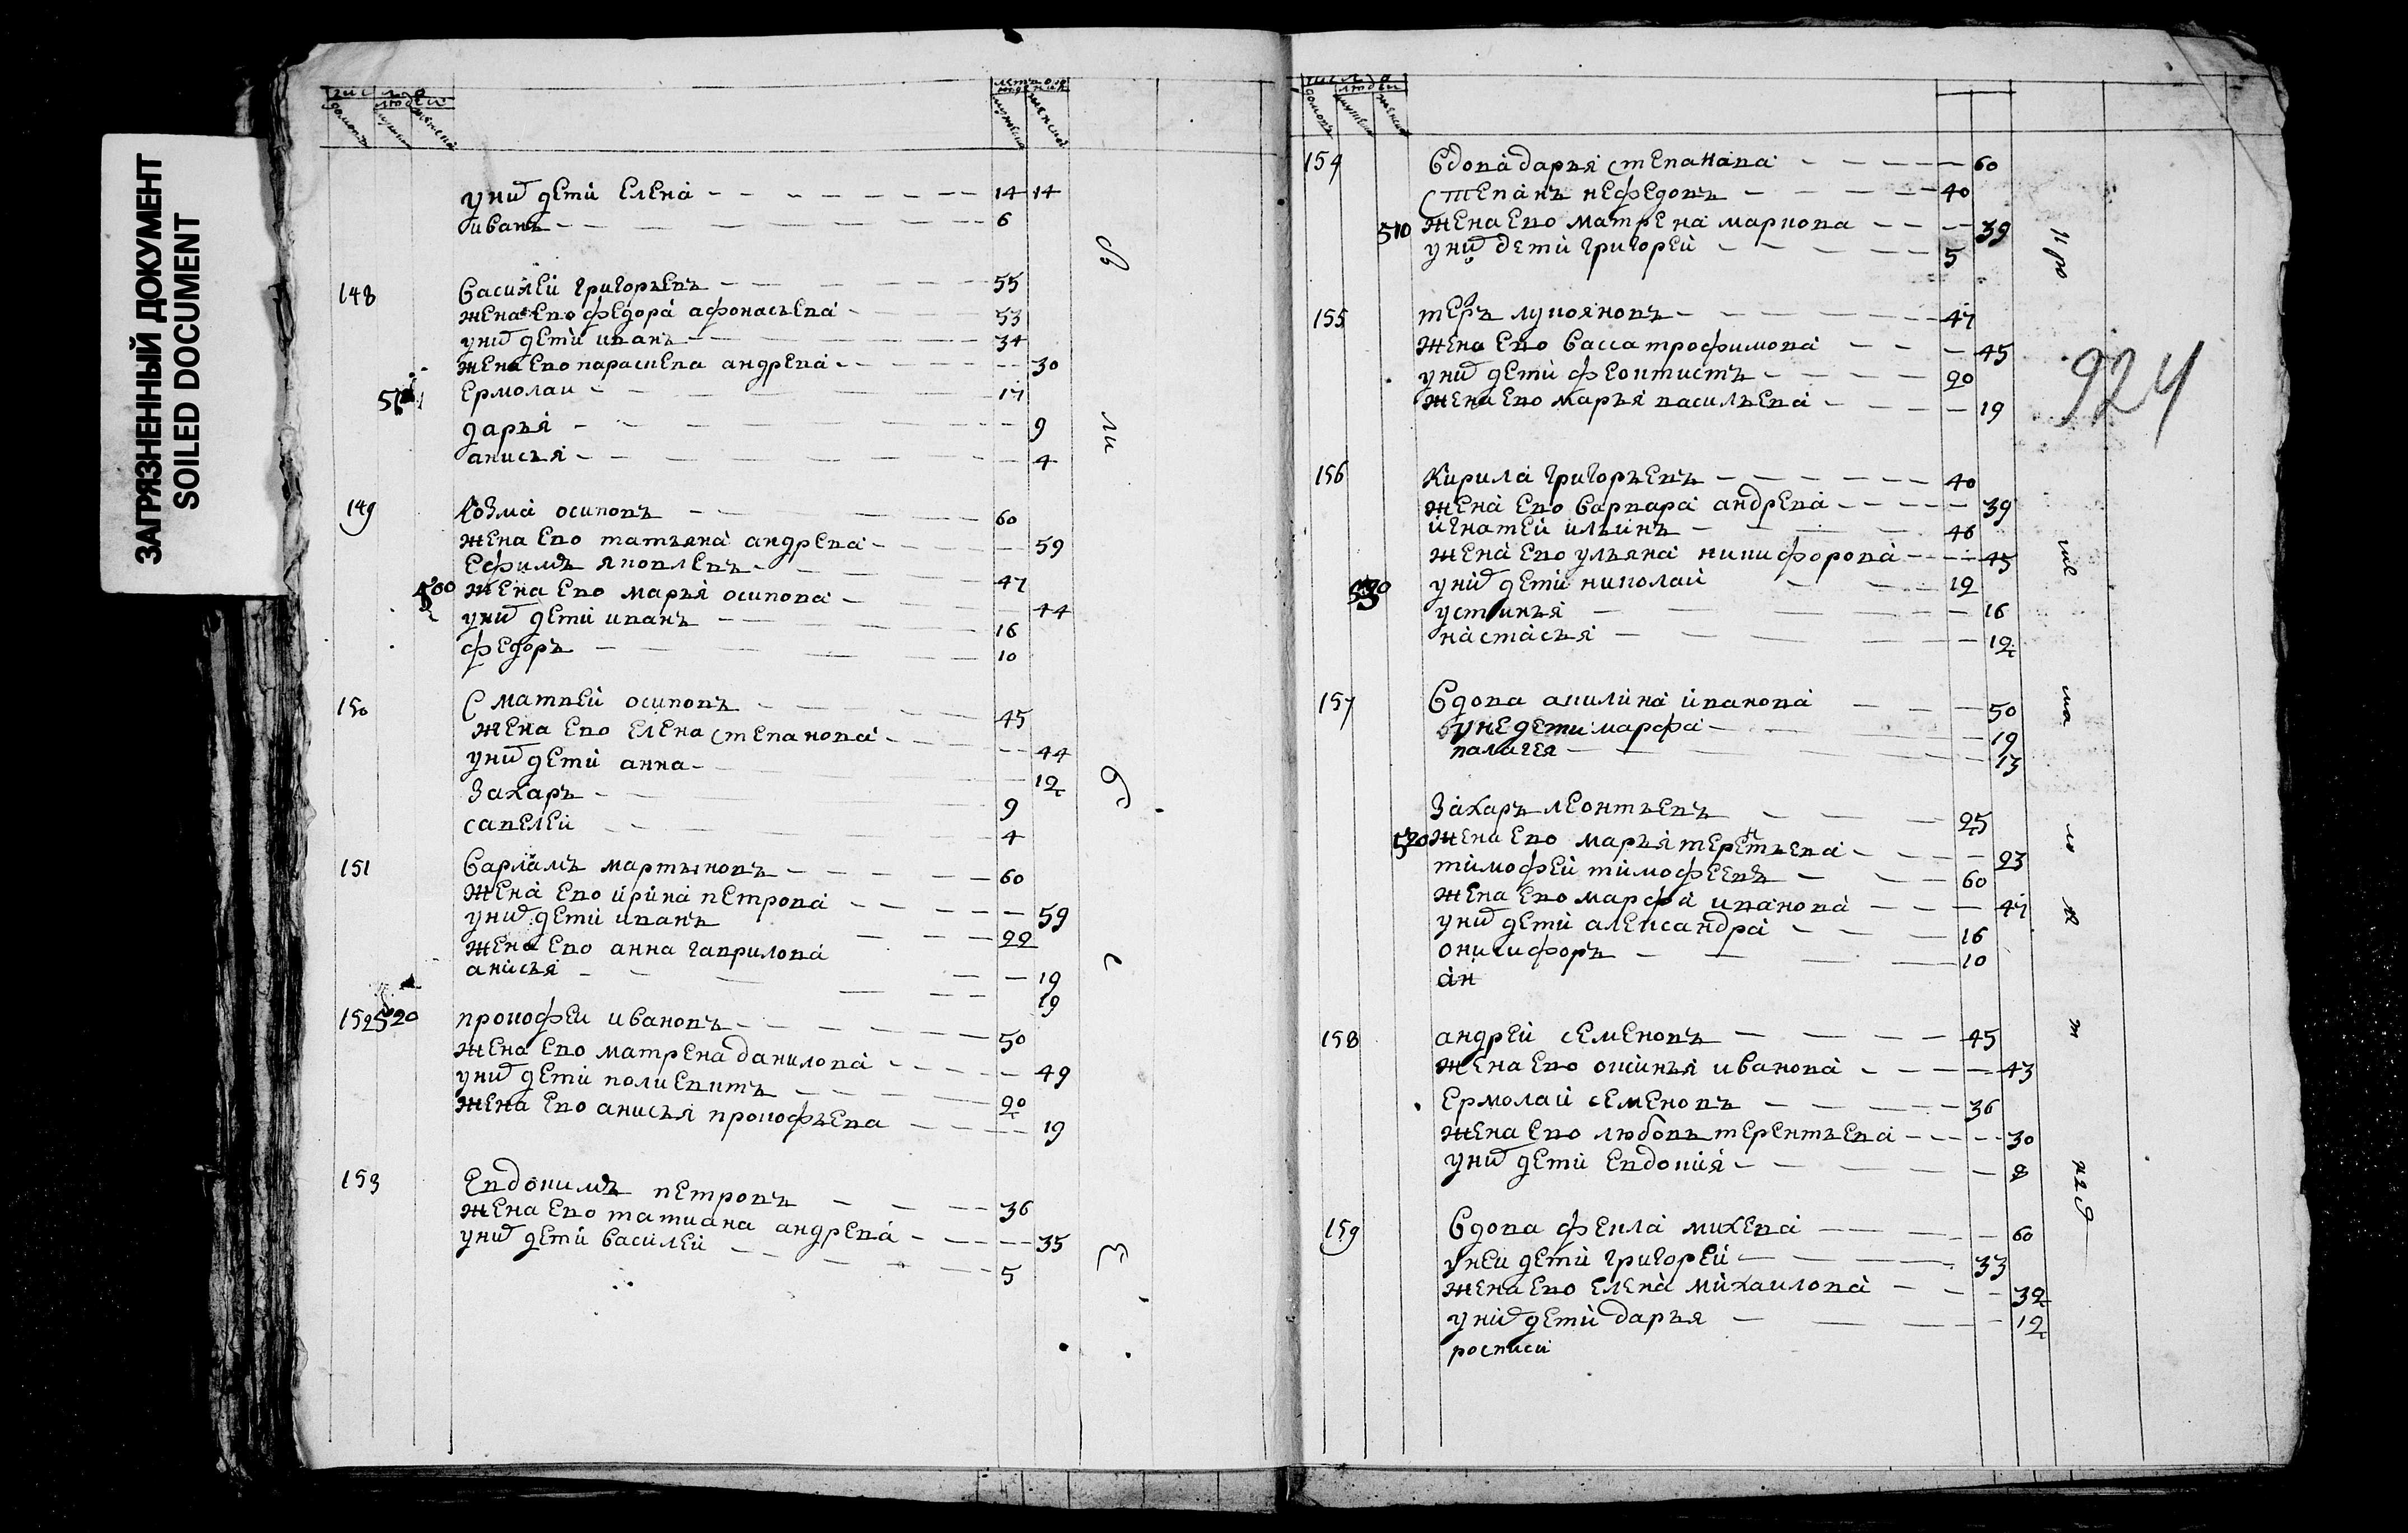 ЗАГРЯЗНЕННЫЙ ДОКУМЕНТ
SOILED DOCUMENT
числа
людей
домовъ
лета
рождения
мужеска
женска
у них дети Елена 14 14
иванъ 6
148 Василеи григорьевъ 55
жена ево федора афонасьева 53
у них дети иванъ 34
жена ево параскева андрева 30
Ермолаи 17
дарья 9
анисья 4
149 козма осиповъ 60
жена ево татьяна андрева 59
Ефимъ яковлевъ 47
500 жена ево марья осипова 44
у них дети иванъ 16
федоръ 10
150 матвеи осиповъ 45
жена ево Елена степанова 44
у них дети анна 12
Захаръ 9
савелеи 4
151 варламъ мартыновъ 60
жена ево ирина петрова 59
у них дети иванъ 22
жена ево анна гаврилова 19
анисья 19
152 520 прокофеи ивановъ 50
жена ево матрена данилова 49
у них дети поликвитъ 20
жена ево анисья прокофьева 19
153 Евдокимъ петровъ 36
жена ево татиана андрева 35
у них дети василеи 5
числа
людеи
домовъ
мужеска
женска
154 вдова дарья степанава 60
степанъ нефедовъ 40
510 жена ево матрена маркова 39
у них дети григореи 5
155 петръ лукояновъ 47
жена ево васса трофимова 45
у них дети феоктистъ 20
жена ево марья васильева 19
924
156 кирила григорьевъ 40
жена ево варвара андрева 39
игнатеи ильинъ 46
жена ево ульяна никифорова 45
у них дети николаи 12
устинья 16
настасья 12
157 вдова акилина иванова 50
у нее дети марфа 19
палагея 13
захаръ леонтьевъ 25
520 жена ево марья терентьева 23
тимофеи тимофеевъ 60
жена ево марфа иванова 47
у них дети александра 16
онисифоръ 10
ан
158 андреи семеновъ 45
жена ево оксинья иванова 43
Ермолаи семеновъ 36
жена ево любовь терентьева 30
у них дети Евдокия 8
159 вдова фекла михева 60
у неи дети григореи 33
жена ево Елена михаилова 32
у них дети дарья 12
росписи